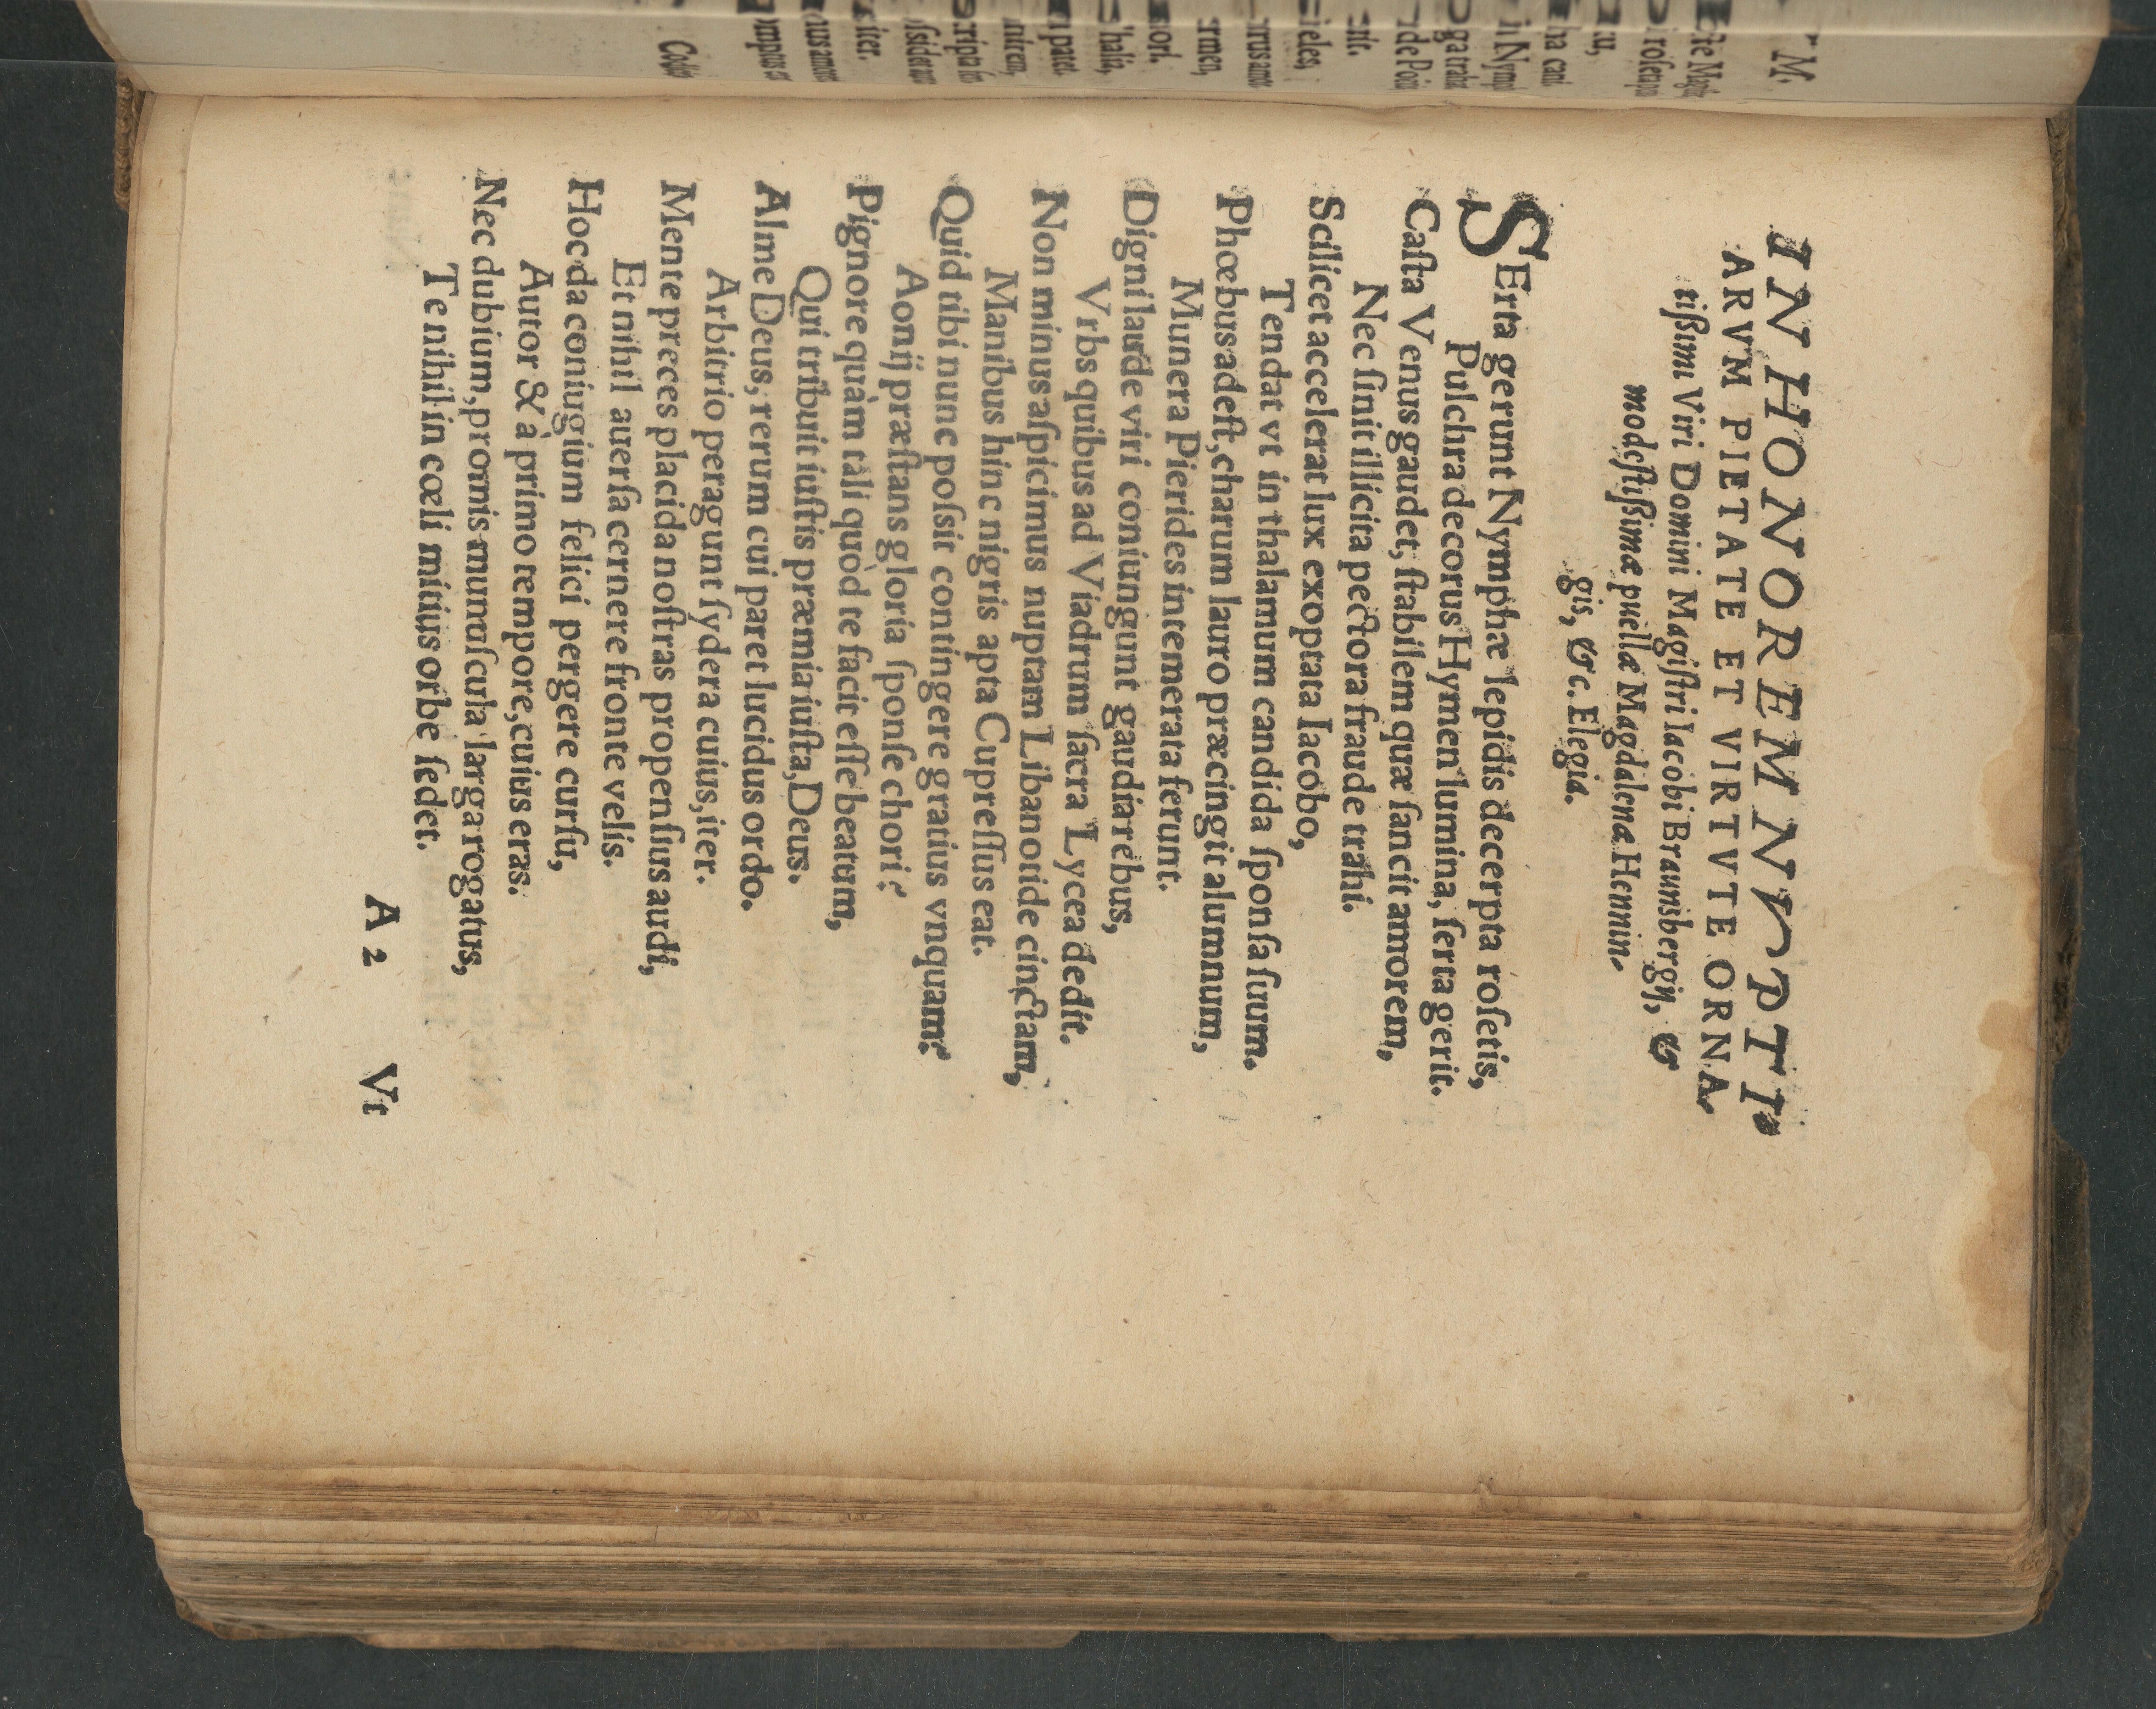 IN HONOREM NVPTI-
ARVM PIETATE ET VIRTVTE ORNA-
tißimi Viri Domini Magiſtri Iacobi Braunsbergij, &
modeſtißimæ puellæ Magdalenæ Hennin-
gis, &c. Elegia.
SErta gerunt Nymphæ lepidis decerpta roſetis,
Pulchra decorus Hymen lumina, ſerta gerit.
Caſta Venus gaudet, ſtabilem quæ ſancit amorem,
Nec ſinit illicita pectora fraude trahi.
Scilicet accelerat lux exoptata Iacobo,
Tendat vt in thalamum candida ſponſa ſuum.
Phœbus adeſt, charum lauro præcingit alumnum,
Munera Pierides intemerata ferunt.
Digni laude viri coniungunt gaudia rebus,
Vrbs quibus ad Viadrum ſacra Lycea dedit.
Non minus aſpicimus nuptam Libanoride cinctam,
Manibus hinc nigris apta Cupreſſus eat.
Quid tibi nunc poſsit contingere gratius vnquam?
Aonij præſtans gloria ſponſe chori?
Pignore quàm tali quòd te facit eſſe beatum,
Qui tribuit iuſtis præmia iuſta, Deus.
Alme Deus, rerum cui paret lucidus ordo.
Arbitrio peragunt ſydera cuius, iter.
Mente preces placida noſtras propenſius audi,
Et nihil auerſa cernere fronte velis.
Hoc da coniugium felici pergere curſu,
Autor & à primo tempore, cuius eras.
Nec dubium, promis munuſcula larga rogatus,
Te nihil in cœli mitius orbe ſedet.
A 2 Vt